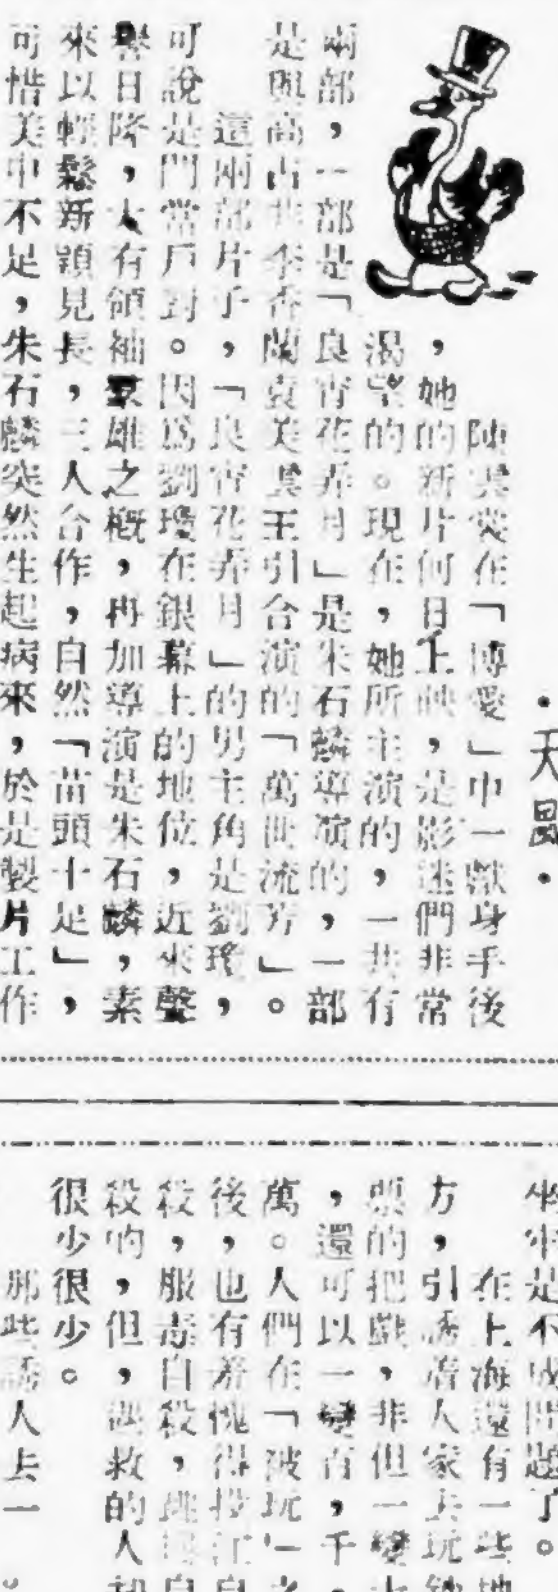 ・天風・
陳雲裳在「博愛」中一獻身手後
，她的新片何日上映，是影迷們非常
渴望的。現在，她所主演的，一共有
兩部，一部是「良宵花弄月」是朱石麟導演的，一部
是與高占非李香蘭袁美雲王引合演的「萬世流芳」。
這兩部片子，「良宵花弄月」的男主角是劉瓊，
可說是門當戶對。因爲劉瓊在銀幕上的地位，近來聲
譽日隆，大有領袖羣雄之概，再加導演是朱石麟，素
來以輕鬆新穎見長，三人合作，自然「苗頭十足」，
可惜美中不足，朱石麟突然生起病來，於是製片工作
坐牢是不成問題了。
在上海還有一些地
方，引誘着人家去玩
的把戲，非但一變
，還可以一變百，千
萬。人們在「被玩」之
後，也有羞愧得投江自
殺，服毒自殺，
殺的，但，
救的人
很少很少。
那些誘人去一